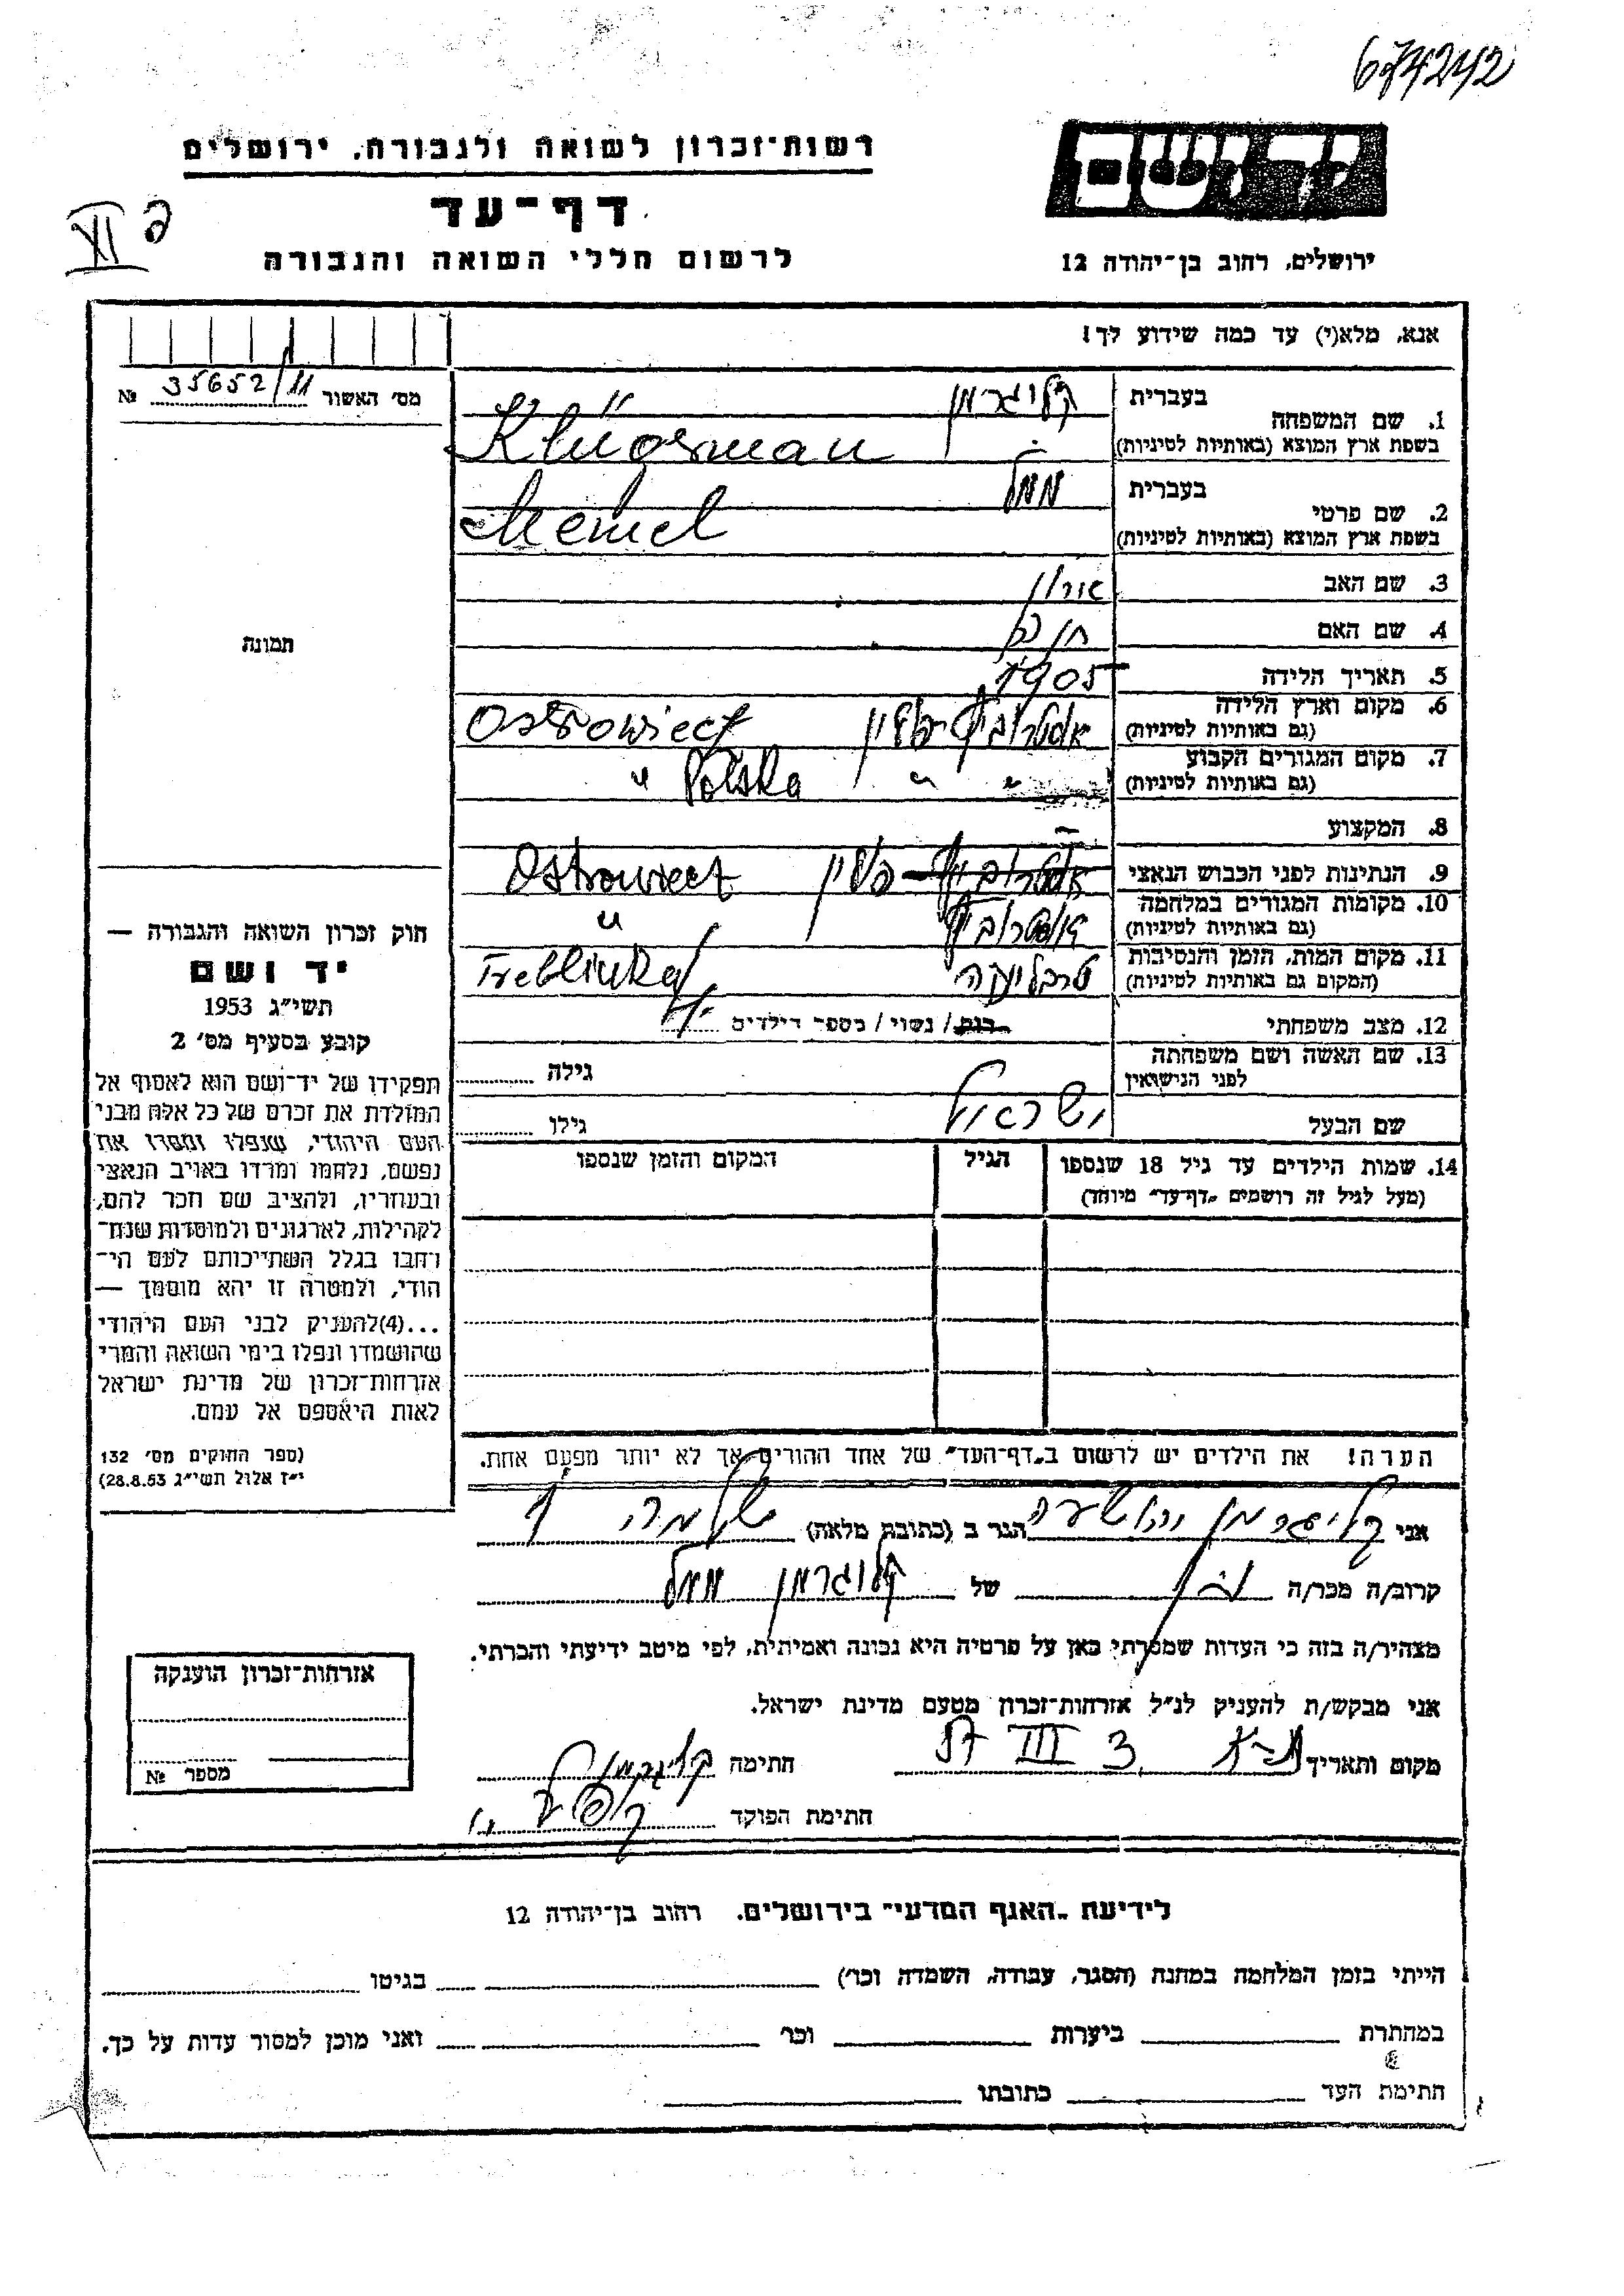 674242
יד ושם
רשות־זכרון לשואה ולגבורה, ירושלים
דף־עד
לרשום חללי השואה והגבורה
ירושלים, רחוב בן־יהודה 12
XI
אנא, מלא(י) עד כמה שידוע לך!
מס׳ האשור 35652/11 №
תמונה
בעברית קלוגרמן
1. שם המשפחה
בשפת ארץ המוצא (באותיות לטיניות) Klügerman
בעברית ממל
2. שם פרטי
בשפת ארץ המוצא (באותיות לטיניות) Memel
3. שם האב
4. שם האם
5. תאריך הלידה 1905
6. מקום וארץ הלידה
(גם באותיות לטיניות) Ostrowiecz
7. מקום המגורים הקבוע
(גם באותיות לטיניות) " " " Polska
8. המקצוע –
9. הנתינות לפני הכבוש הנאצי פולין Ostrowiect
10. מקומות המגורים במלחמה
(גם באותיות לטיניות) "
11. מקום המות, הזמן והנסיבות
(המקום גם באותיות לטיניות) טרבלינקה Treblinka
12. מצב משפחתי רווק / נשוי / מספר הילדים
13. שם האשה ושם משפחתה
לפני הנישואין גילה
שם הבעל ישראל גילו
14. שמות הילדים עד גיל 18 שנספו
(מעל לגיל זה רושמים „דף־עד״ מיוחד)
הגיל
המקום והזמן שנספו
הערה! את הילדים יש לרשום ב„דף־העד״ של אחד ההורים אך לא יותר מפעם אחת.
חוק זכרון השואה והגבורה —
יד ושם
תשי״ג 1953
קובע בסעיף מס׳ 2
תפקידו של יד־ושם הוא לאסוף אל
המולדת את זכרם של כל אלה מבני
העם היהודי, שנפלו ומסרו את
נפשם, נלחמו ומרדו באויב הנאצי
ובעוזריו, ולהציב שם וזכר להם,
לקהילות, לארגונים ולמוסדות שנח־
רבו בגלל השתייכותם לעם הי־
הודי, ולמטרה זו יהא מוסמך —
...(4)להעניק לבני העם היהודי
שהושמדו ונפלו בימי השואה והמרי
אזרחות־זכרון של מדינת ישראל
לאות היאספם אל עמם.
(ספר החוקים מס׳ 132
י״ז אלול תשי״ג 28.8.53)
אני קליגרמן יהושע הגר ב (כתובת מלאה) שלמה
קרוב/ה מכר/ה של קלוגרמן ממל
מצהיר/ה בזה כי העדות שמסרתי כאן על פרטיה היא נכונה ואמיתית, לפי מיטב ידיעתי והכרתי.
אני מבקש/ת להעניק לנ״ל אזרחות־זכרון מטעם מדינת ישראל.
מקום ותאריך ת-א 3 III 57 חתימה קליגרמן
חתימת הפוקד
אזרחות־זכרון הוענקה
מספר №
לידיעת „האגף המדעי״ בירושלים, רחוב בן־יהודה 12
הייתי בזמן המלחמה במחנה (הסגר, עבודה, השמדה וכר׳) בגיטו
במחתרת ביערות וכר׳ ואני מוכן למסור עדות על כך.
חתימת העד כתובתו